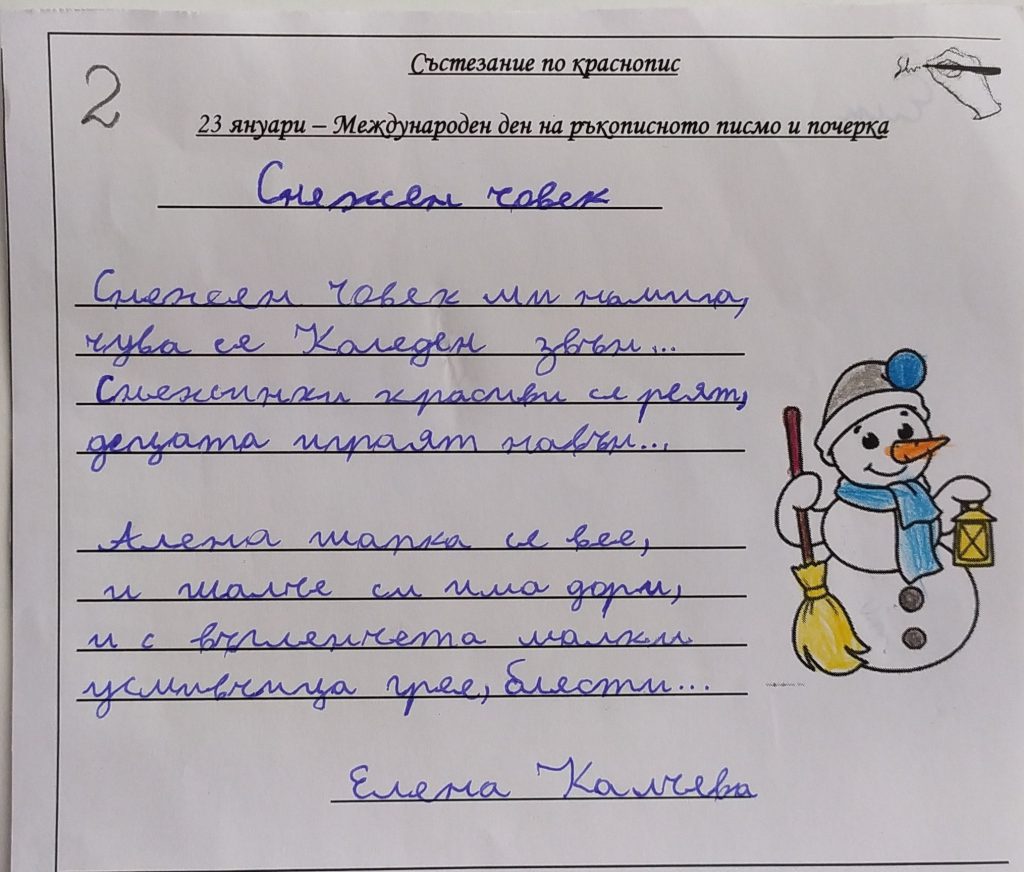 2
Състезание по краснопис
23 януари – Международен ден на ръкописното писмо и почерка
Снежен човек
Снежен човек ми намига,
чува се Коледен звън...
Снежинки красиви се реят,
децата играят навън...
Алена шапка се вее,
и шалче си има дори,
и с въгленчета малки
усмивчица грее, блести...
Елена Калчева